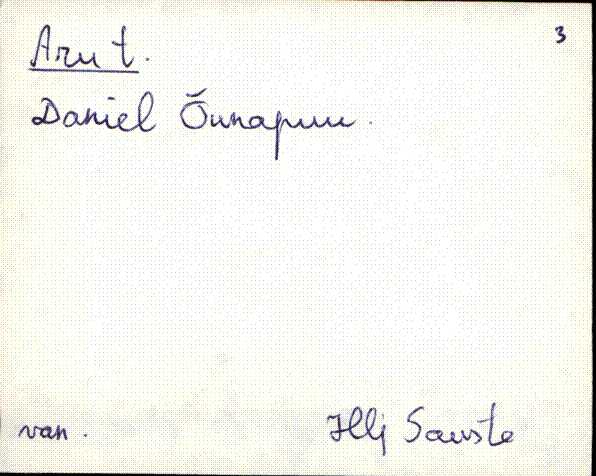 3
Aru t.
Daniel Õunapuu.
van.
Hlj Sauste